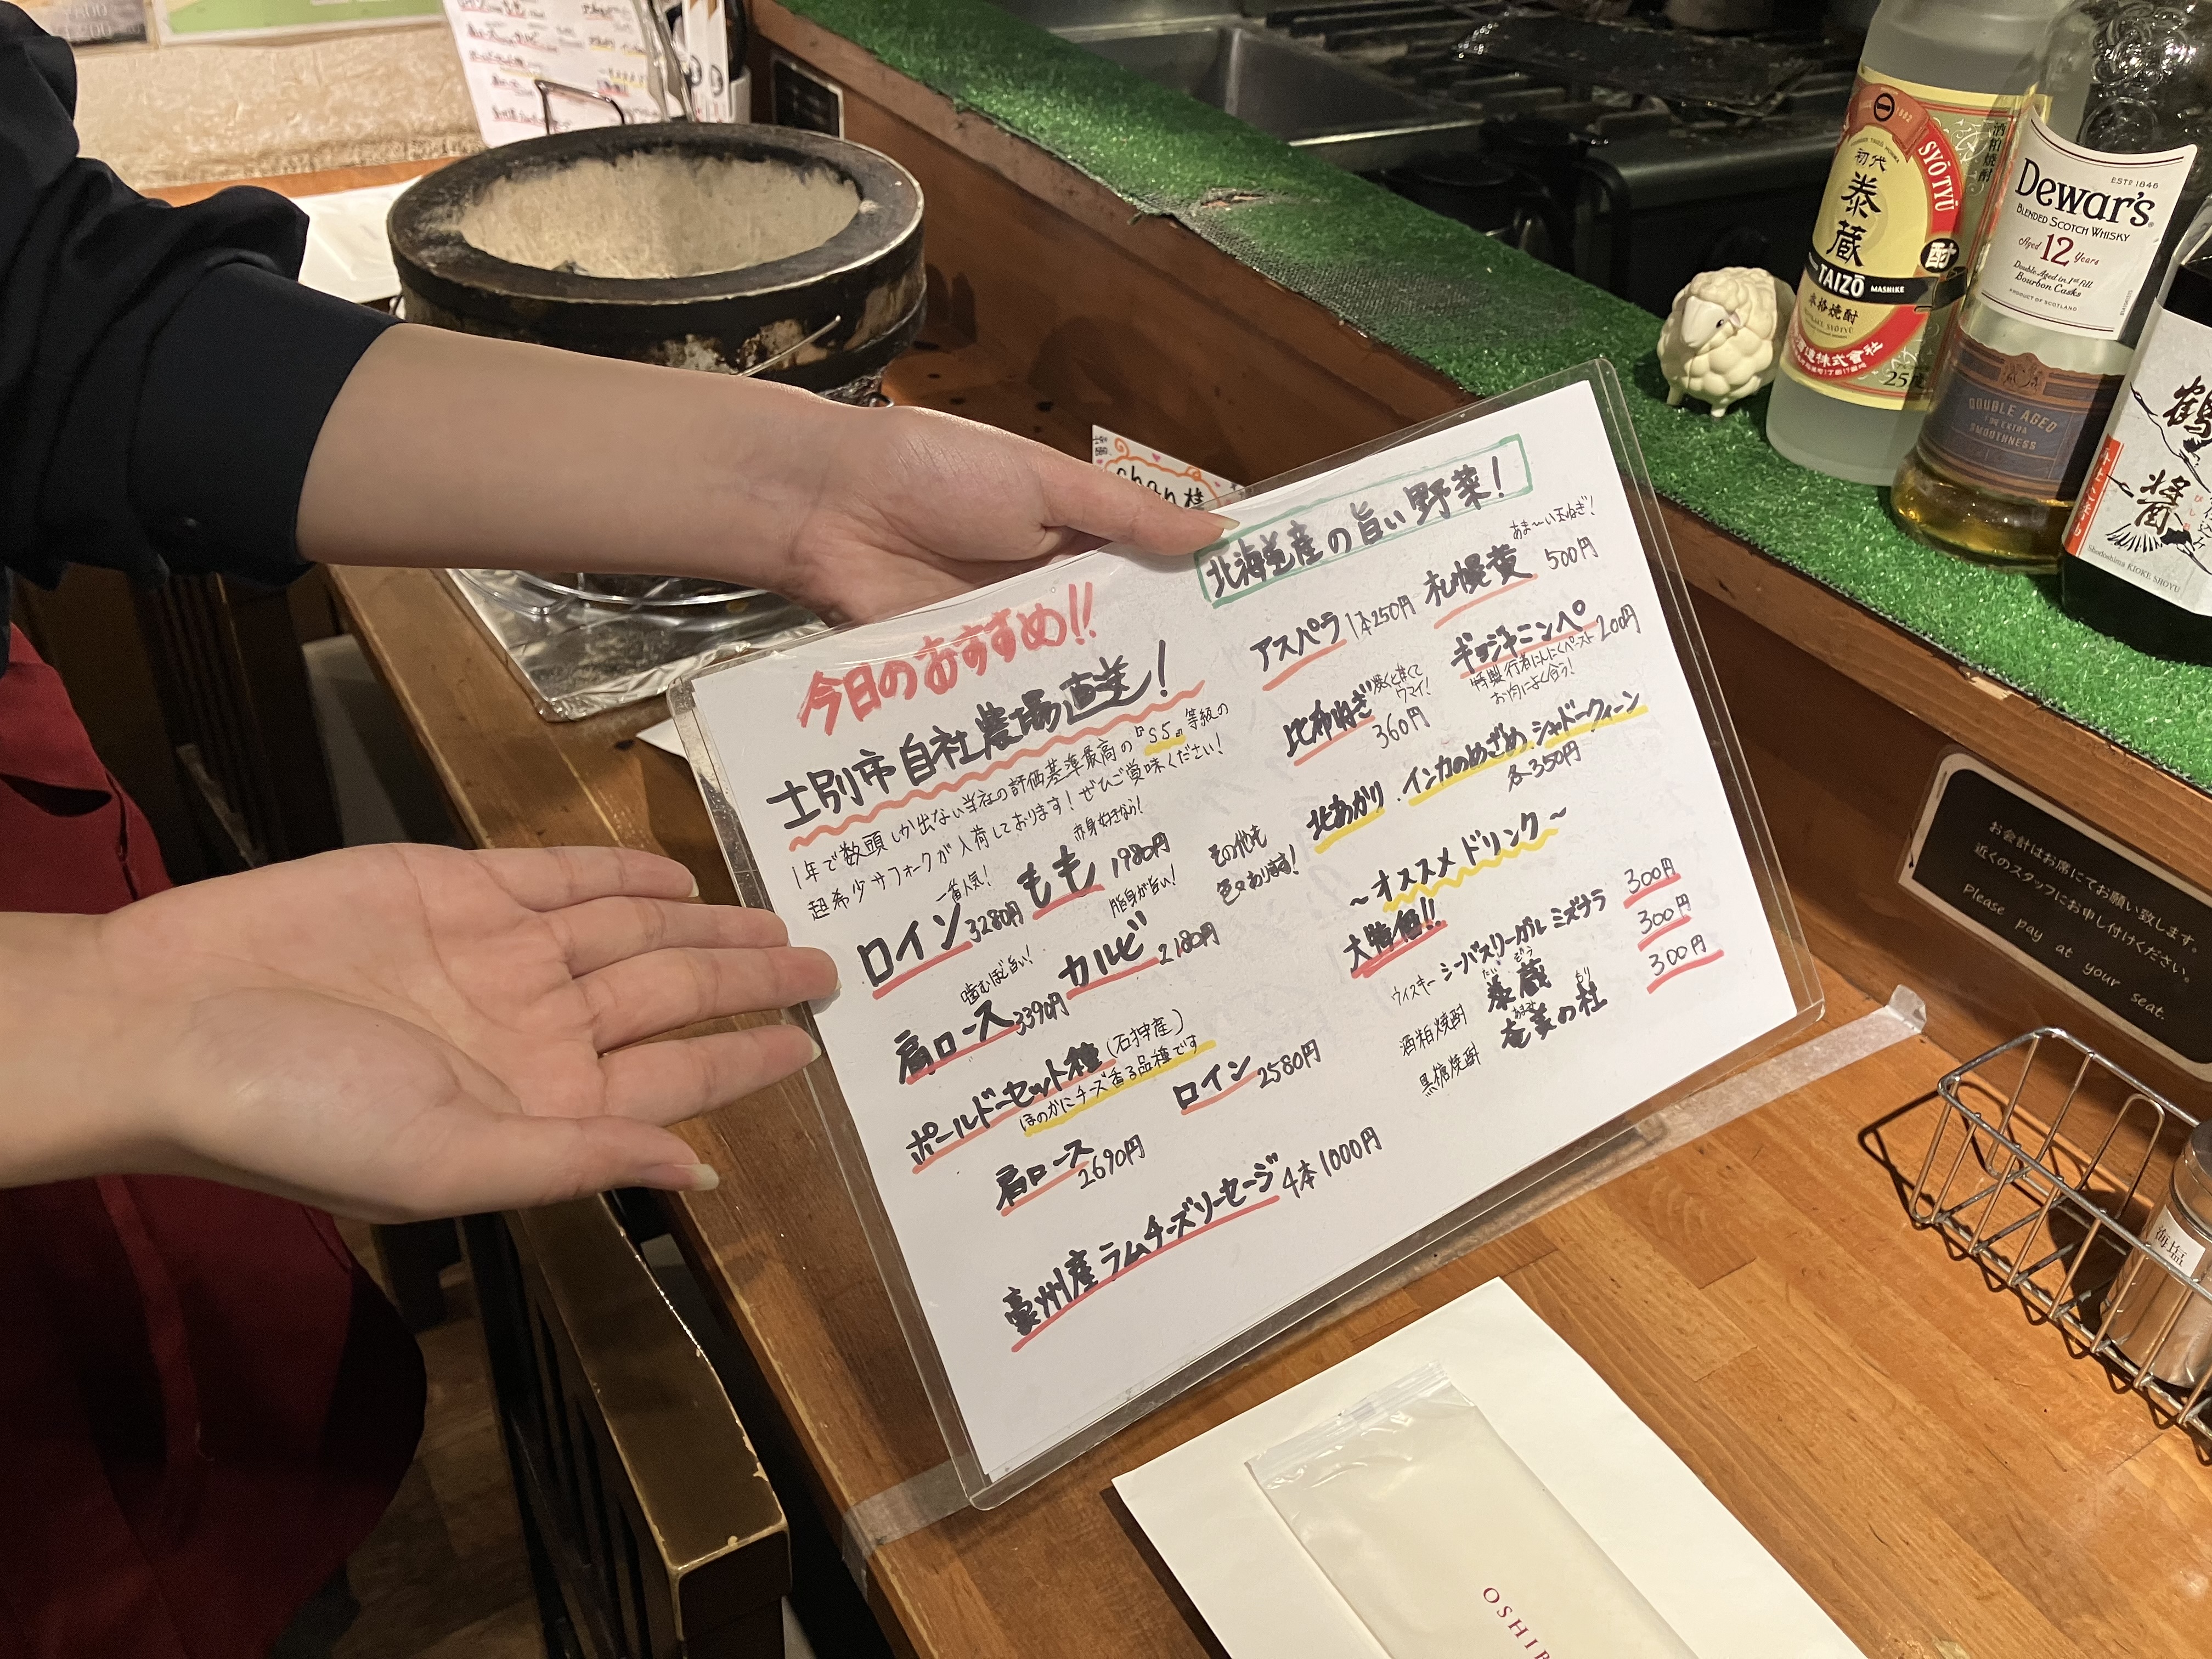 今日のおすすめ!!
士別市自社農場直送!
1年で数頭しか出ない当社の評価基準最高の『S5』等級の
超希少サフォークが入荷しております!ぜひご賞味ください!
一番人気!
ロイン 3280円
赤身好きなら!
もも 1980円
噛むほど旨い!
肩ロース 3390円
脂身が旨い!
カルビ 2180円
その他も
色々あります!
ポールドーセット種(石狩産)
ほのかにチーズ香る品種です
肩ロース 2690円
ロイン 2580円
豪州産ラムチーズソーセージ 4本1000円
北海道産の旨い野菜!
アスパラ 1本250円
あま〜い玉ねぎ!
札幌黄 500円
比布ねぎ 焼くと甘くて
ウマイ!
360円
ギョジャニンペ 200円
特製 行者にんにくペースト
お肉によく合う!
北あかり・インカのめざめ・シャドークィーン
各350円
〜オススメドリンク〜
大特価!!
ウィスキー シーバスリーガル ミズナラ 300円
酒粕焼酎 泰蔵 300円
たい ぞう
黒糖焼酎 奄美の杜 300円
あまみ もり
chan様
初代
泰蔵
SYŌTYŪ
酎
TAIZŌ MASHIKE
本格焼酎
酒造株式会社
酒粕焼酎
ESTD 1846
Dewar's
BLENDED SCOTCH WHISKY
Aged 12 Years
Double Aged in 1st Fill
Bourbon Casks
PRODUCT OF SCOTLAND
DOUBLE AGED
FOR EXTRA
SMOOTHNESS
鶴
醤
Shodoshima KIOKE SHOYU
お会計はお席にてお願い致します。
近くのスタッフにお申し付けください。
Please pay at your seat.
海塩
OSHIB